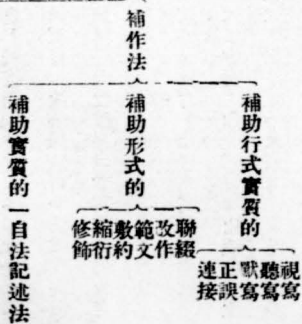 補作法
補助行式實質的
視寫
聽寫
默寫
正誤
連接
補助形式的
聯綴
改作
範文
敷約
縮衍
修飾
補助實質的一自法記述法